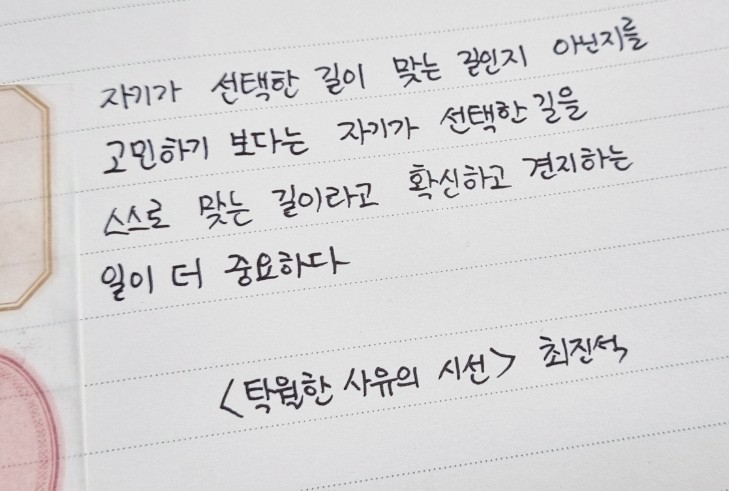 자기가 선택한 길이 맞는 길인지 아닌지를
고민하기 보다는 자기가 선택한 길을
스스로 맞는 길이라고 확신하고 견지하는
일이 더 중요하다
<탁월한 사유의 시선> 최진석